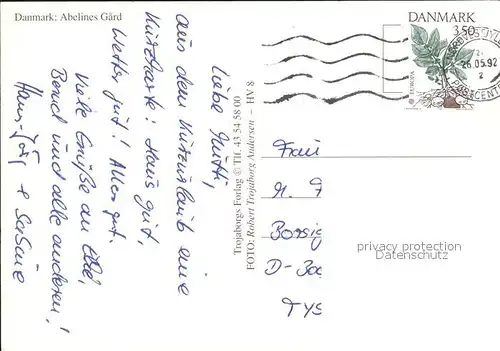 Danmark: Abelines Gård
Liebe Mutti,
aus dem Kurzurlaub eine
Kurzkarte! Haus gut,
Wetter gut! Alles gut.
Viele Grüße an Elle,
Bernd und alle anderen!
Hans-Jörg + Sabine
Trojaborgs Forlag © Tlf. 43 54 58 00
FOTO: Robert Trojaborg Andersen – HV 8
DANMARK
3.50
EUROPA
26.05.92
2
POSTCENTER
Frau
H. F
Borsig
D-
TYS
privacy protection
Datenschutz